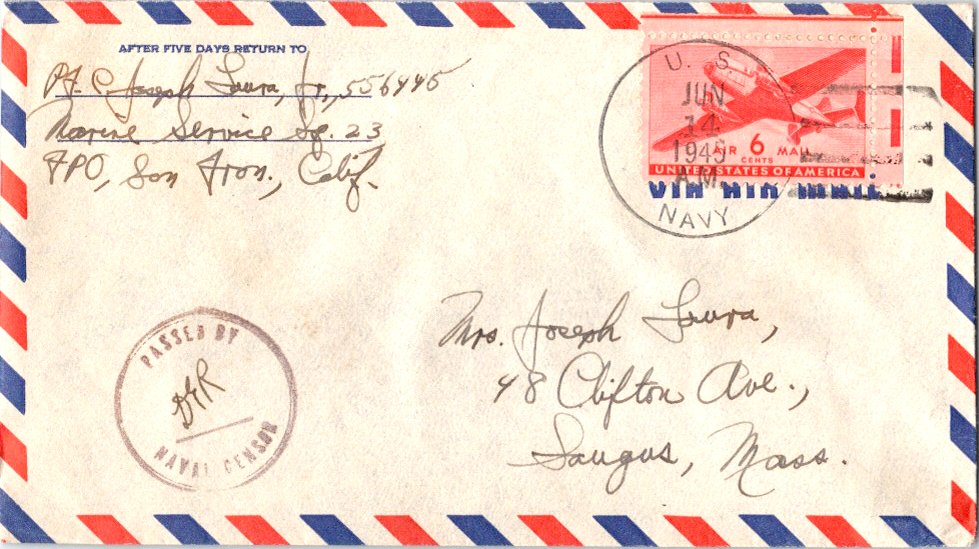 AFTER FIVE DAYS RETURN TO
Joseph Laura, Jr., 556445
Marine Service Sq. 23
FPO, San Fran., Calif.
U. S.
JUN
14
1945
A.M.
NAVY
AIR 6 MAIL
CENTS
UNITED STATES OF AMERICA
VIA AIR MAIL
PASSED BY
NAVAL CENSOR
Mrs. Joseph Laura,
48 Clifton Ave.,
Saugus, Mass.